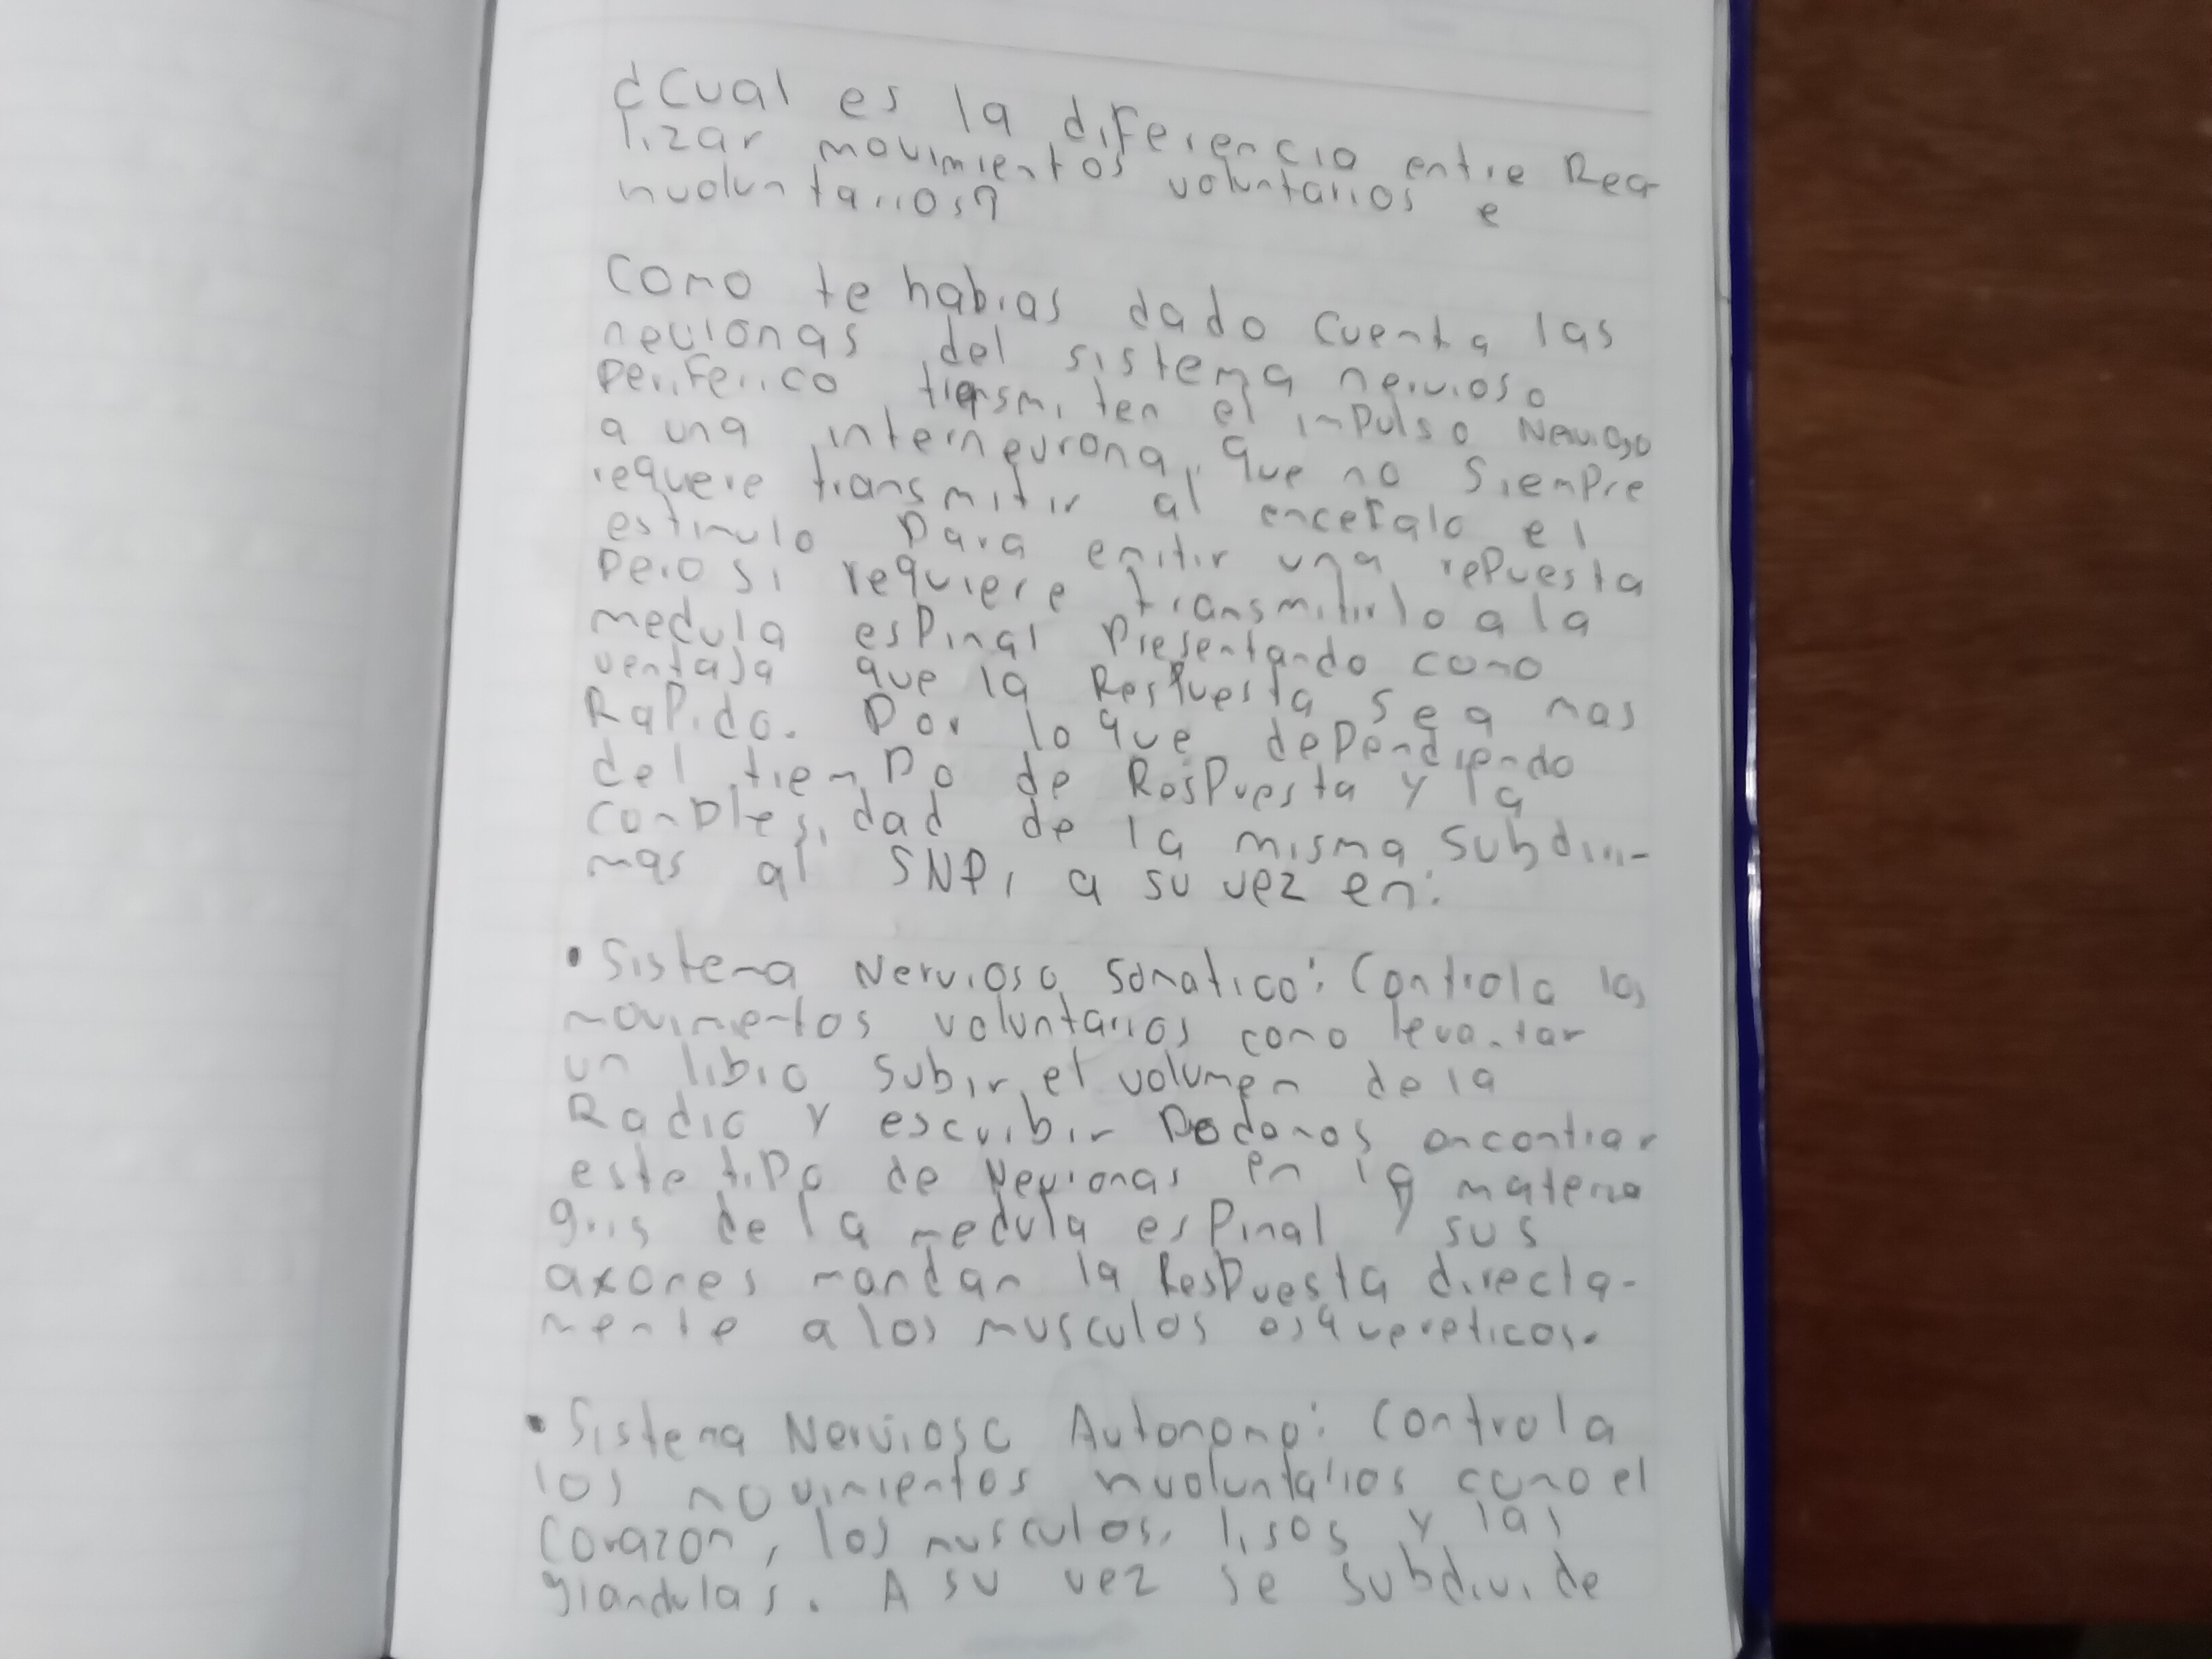 ¿Cual es la diferencia entre Rea-
lizar movimientos voluntarios e
nvoluntarios?
Como te habias dado cuenta las
neuronas del sistema nervioso
periferico, transmiten el impulso Nervioso
a una interneurona, que no siempre
requere transmitir al encefalo el
estimulo para emitir una repuesta
pero si requiere transmitirlo a la
medula espinal presentando como
ventaja que la Respuesta sea mas
Rapido. Por lo que dependiendo
del tiempo de Respuesta y la
complesidad de la misma subdivi-
mas al SNP, a su vez en:
• Sistema Nervioso somatico: Controla los
movimientos voluntarios como levantar
un libro subir el volumen de la
Radio y escribir Podemos encontrar
este tipo de Neuronas en la materia
gris de la medula espinal y sus
axones mandan la Respuesta directa-
mente a los musculos esquereticos.
• Sistema Nervioso Autonomo: Controla
los movimientos nvoluntarios como el
Corazon, los musculos, lisos y las
glandulas. A su vez se subdivide